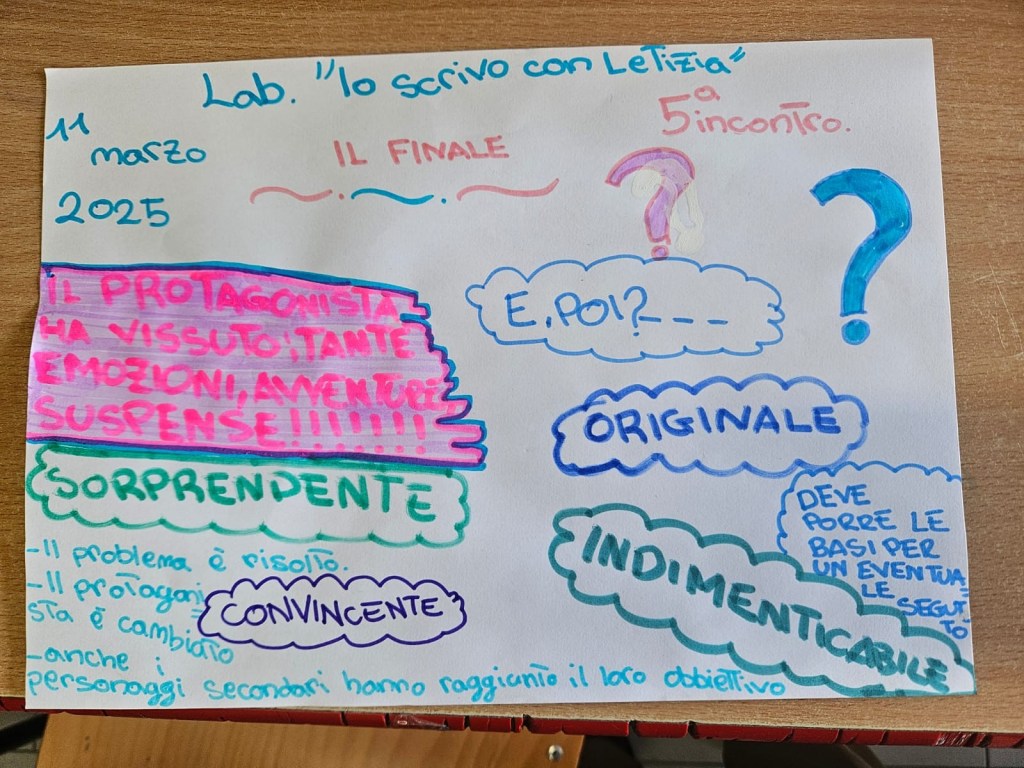 Lab. "Io scrivo con Letizia"
11
marzo
2025
5ª incontro.
IL FINALE
IL PROTAGONISTA
HA VISSUTO; TANTE
EMOZIONI, AVVENTURE,
SUSPENSE!!!!!!!
?
?
E, POI?_ _ _
ORIGINALE
SORPRENDENTE
DEVE
PORRE LE
BASI PER
UN EVENTUA=
LE SEGUI=
TO
INDIMENTICABILE
-Il problema è risolto.
-Il protagoni
sta è cambiato
CONVINCENTE
-anche i
personaggi secondari hanno raggiunto il loro obbiettivo